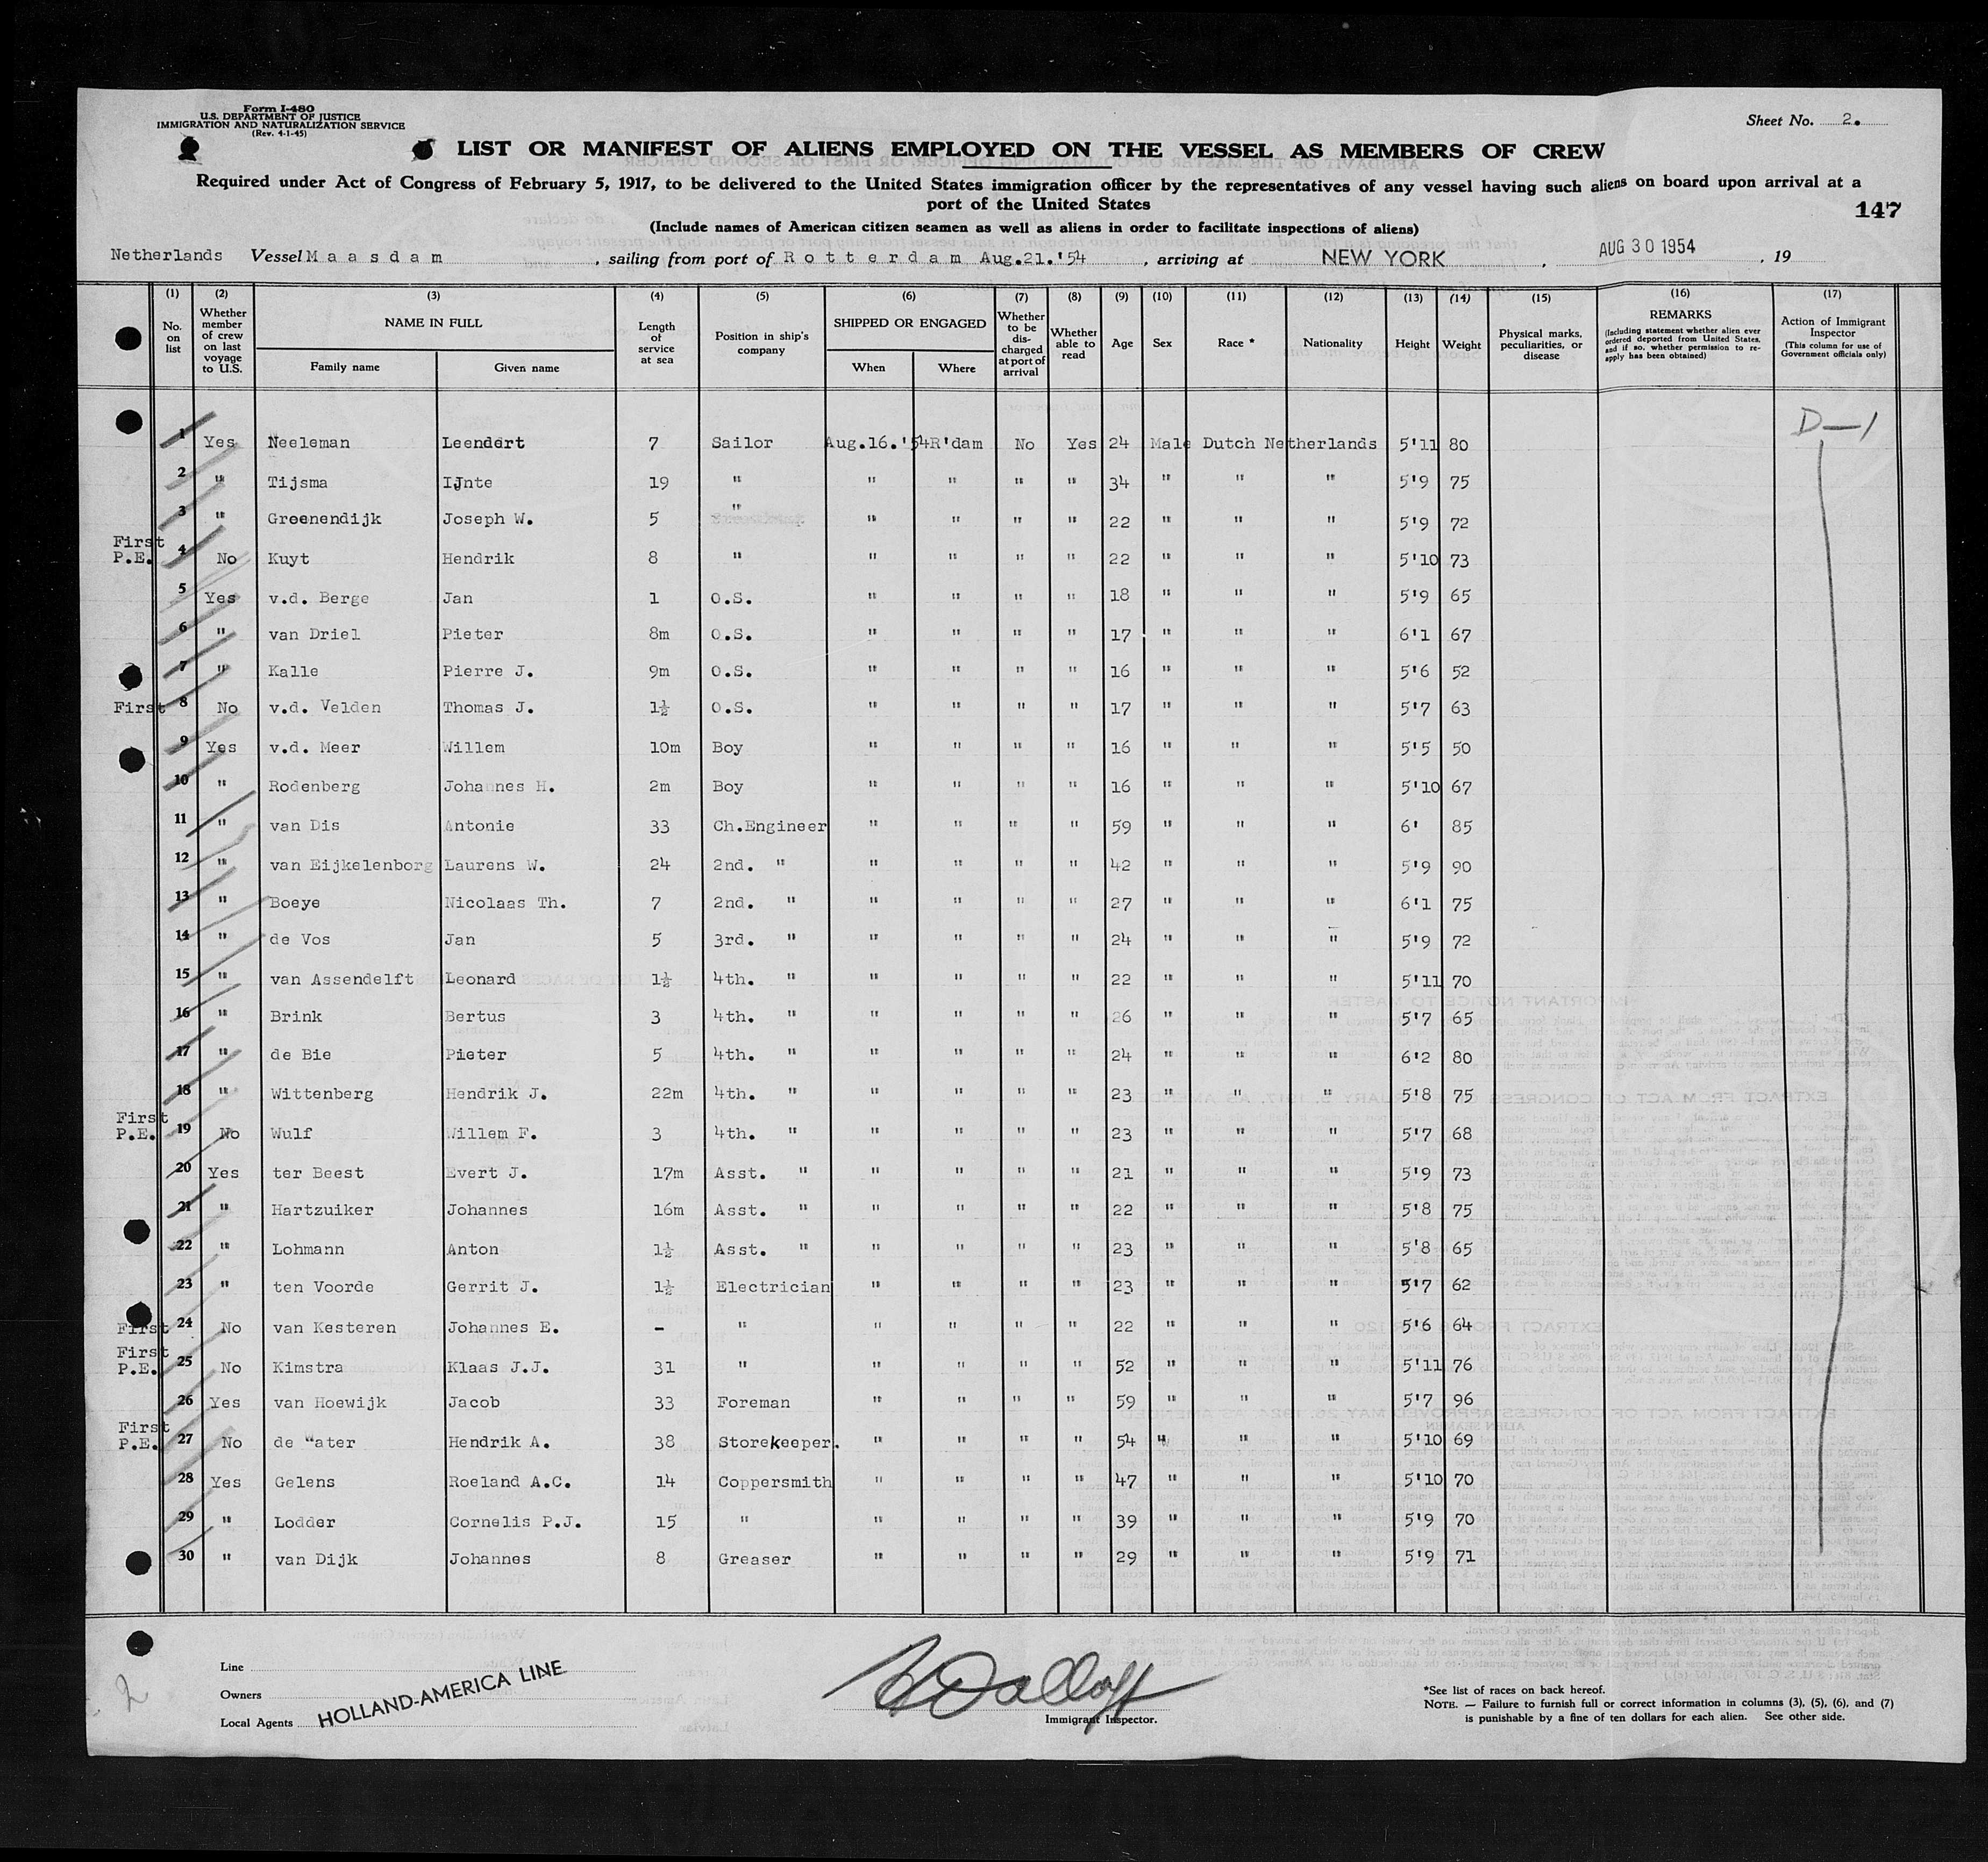 Form I-480
U.S. DEPARTMENT OF JUSTICE
IMMIGRATION AND NATURALIZATION SERVICE
(Rev. 4-1-45)
Sheet No. 2.
LIST OR MANIFEST OF ALIENS EMPLOYED ON THE VESSEL AS MEMBERS OF CREW
Required under Act of Congress of February 5, 1917, to be delivered to the United States immigration officer by the representatives of any vessel having such aliens on board upon arrival at a
port of the United States
147
(Include names of American citizen seamen as well as aliens in order to facilitate inspections of aliens)
Netherlands Vessel Maasdam, sailing from port of Rotterdam Aug.21.'54, arriving at NEW YORK, AUG 30 1954, 19
(1) No. on list (2) Whether member of crew on last voyage to U.S. (3) NAME IN FULL Family name Given name (4) Length of service at sea (5) Position in ship's company (6) SHIPPED OR ENGAGED When Where (7) Whether to be discharged at port of arrival (8) Whether able to read (9) Age (10) Sex (11) Race * (12) Nationality (13) Height (14) Weight (15) Physical marks, peculiarities, or disease (16) REMARKS (Including statement whether alien ever ordered deported from United States, and if so, whether permission to re-apply has been obtained) (17) Action of Immigrant Inspector (This column for use of Government officials only)
D-1
1 Yes Neeleman Leendert 7 Sailor Aug.16.'54 R'dam No Yes 24 Male Dutch Netherlands 5'11 80
2 " Tijsma IJnte 19 " " " " " 34 " " " 5'9 75
3 " Groenendijk Joseph W. 5 " " " " " 22 " " " 5'9 72
First P.E. 4 No Kuyt Hendrik 8 " " " " " 22 " " " 5'10 73
5 Yes v.d. Berge Jan 1 O.S. " " " " 18 " " " 5'9 65
6 " van Driel Pieter 8m O.S. " " " " 17 " " " 6'1 67
7 " Kalle Pierre J. 9m O.S. " " " " 16 " " " 5'6 52
First 8 No v.d. Velden Thomas J. 1½ O.S. " " " " 17 " " " 5'7 63
9 Yes v.d. Meer Willem 10m Boy " " " " 16 " " " 5'5 50
10 " Rodenberg Johannes H. 2m Boy " " " " 16 " " " 5'10 67
11 " van Dis Antonie 33 Ch.Engineer " " " " 59 " " " 6' 85
12 " van Eijkelenborg Laurens W. 24 2nd. " " " " " 42 " " " 5'9 90
13 " Boeye Nicolaas Th. 7 2nd. " " " " " 27 " " " 6'1 75
14 " de Vos Jan 5 3rd. " " " " " 24 " " " 5'9 72
15 " van Assendelft Leonard 1½ 4th. " " " " " 22 " " " 5'11 70
16 " Brink Bertus 3 4th. " " " " " 26 " " " 5'7 65
17 " de Bie Pieter 5 4th. " " " " " 24 " " " 6'2 80
18 " Wittenberg Hendrik J. 22m 4th. " " " " " 23 " " " 5'8 75
First P.E. 19 No Wulf Willem F. 3 4th. " " " " " 23 " " " 5'7 68
20 Yes ter Beest Evert J. 17m Asst. " " " " " 21 " " " 5'9 73
21 " Hartzuiker Johannes 16m Asst. " " " " " 22 " " " 5'8 75
22 " Lohmann Anton 1½ Asst. " " " " " 23 " " " 5'8 65
23 " ten Voorde Gerrit J. 1½ Electrician " " " " 23 " " " 5'7 62
First 24 No van Kesteren Johannes E. - " " " " " 22 " " " 5'6 64
First P.E. 25 No Kimstra Klaas J.J. 31 " " " " " 52 " " " 5'11 76
26 Yes van Hoewijk Jacob 33 Foreman " " " " 59 " " " 5'7 96
First P.E. 27 No de Water Hendrik A. 38 Storekeeper. " " " " 54 " " " 5'10 69
28 Yes Gelens Roeland A.C. 14 Coppersmith " " " " 47 " " " 5'10 70
29 " Lodder Cornelis P.J. 15 " " " " " 39 " " " 5'9 70
30 " van Dijk Johannes 8 Greaser " " " " 29 " " " 5'9 71
2
Line
Owners
Local Agents
HOLLAND-AMERICA LINE
Immigrant Inspector.
*See list of races on back hereof.
NOTE. — Failure to furnish full or correct information in columns (3), (5), (6), and (7)
is punishable by a fine of ten dollars for each alien. See other side.